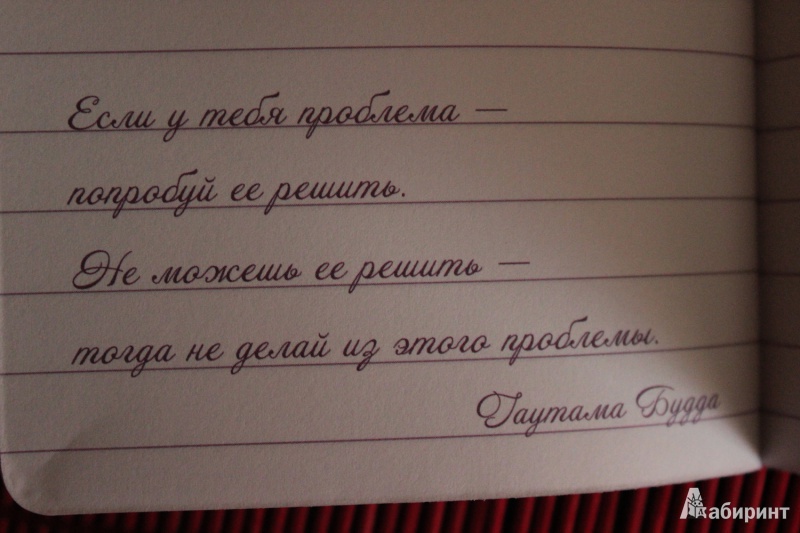 Если у тебя проблема —
попробуй ее решить.
Не можешь ее решить —
тогда не делай из этого проблемы.
Гаутама Будда
Лабиринт